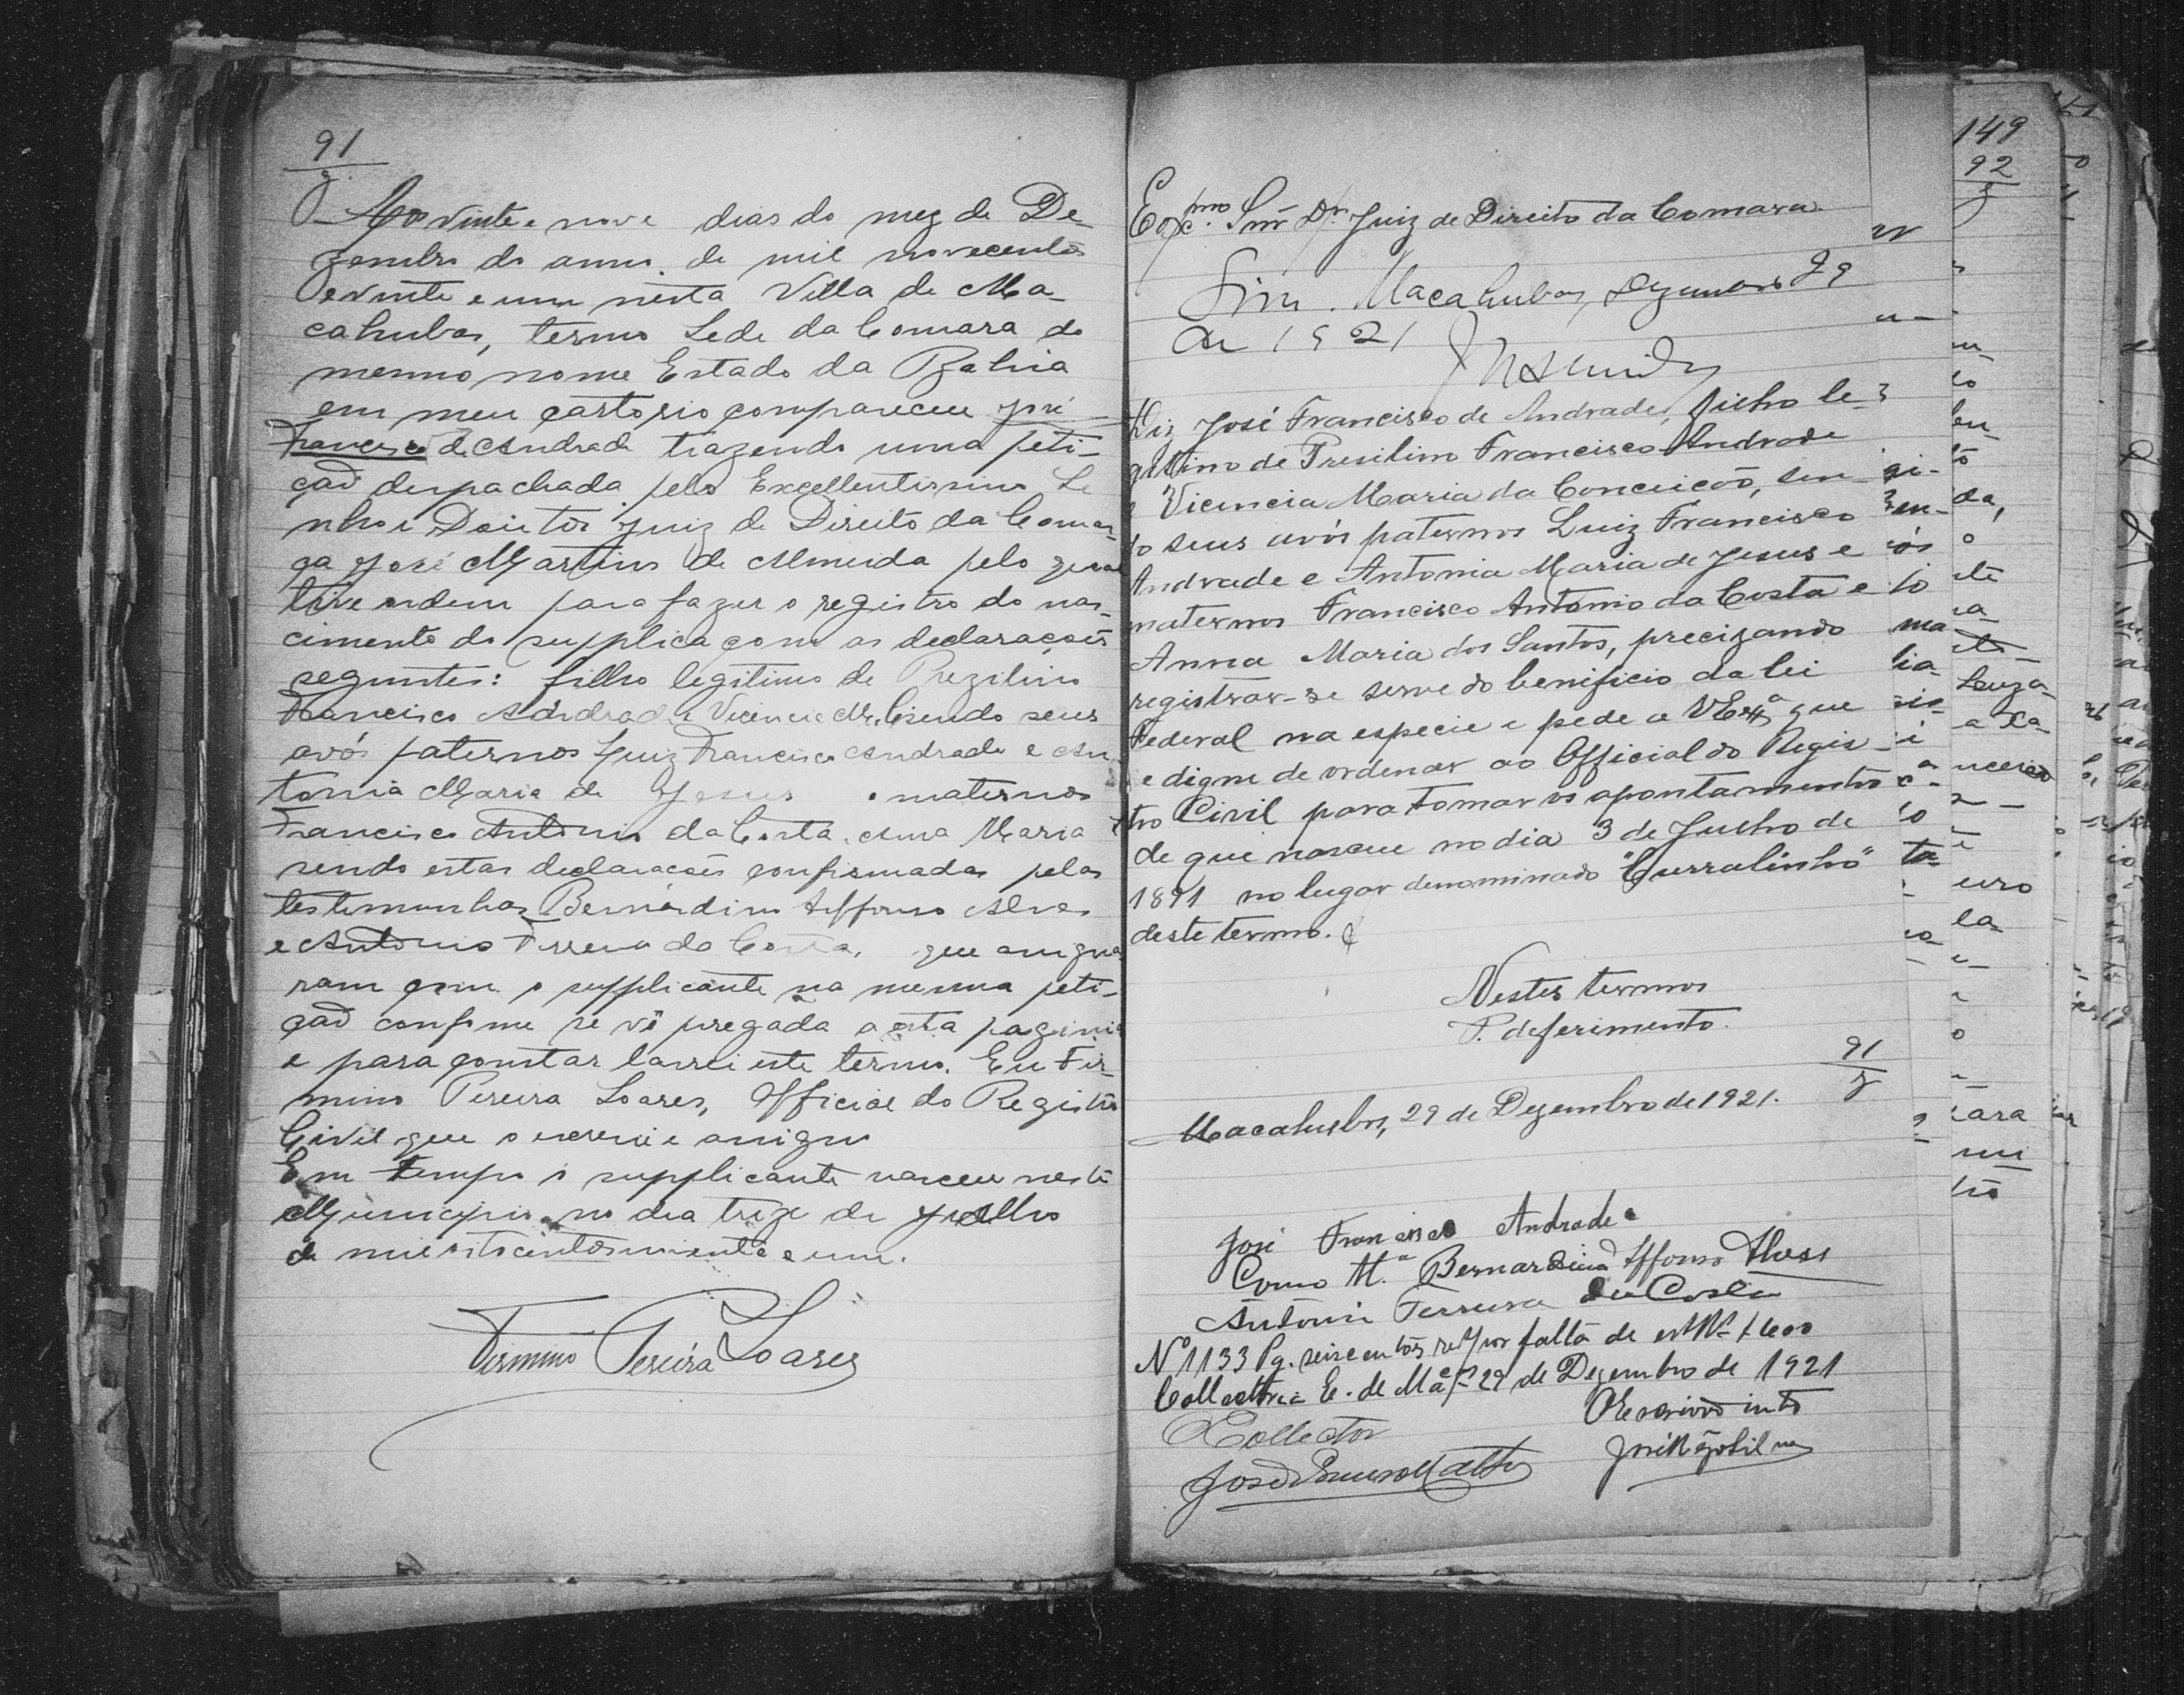 91
Aos vinte e nove dias do mez de De-
zembro do anno de mil novecentos
e vinte e um nesta Villa de Ma-
cahubas, termo Sede da Comarca do
mesmo nome Estado da Bahia
em meu cartorio compareceu José
Francisco de Andrade trazendo uma peti-
ção despachada pelo Excellentissimo Se
nhor Doutor Juiz de Direito da Comar-
ca José Martins de Almeida pelo qual
tive ordem para fazer o registro do nas-
cimento do supplica com as declarações
seguntes: filho legitimo de Prezilino
Francisco Andrade e Vicencia M. C. sendo seus
avós paternos Luiz Francisco Andrade e An
tonia Maria de Jesus e maternos
Francisco Antonio da Costa e Anna Maria
sendo estas declarações confirmadas pelas
testemunhas Bernardino Affonso Alves
e Antonio Ferreira da Costa, que assigna
ram com o supplicante na mesma peti-
ção conforme se vê pregada a esta pagina
e para constar lavrei este termo. Eu Fir-
mino Pereira Soares, Official do Registro
Civil que o escrevi e assigno
Em tempo o supplicante nasceu neste
Municipio no dia treze de Julho
de mil oitocentos noventa e um.
Firmino Pereira Soares
Exmo. Snr. Dr. Juiz de Direito da Comarca
Sim. Macahubas, Dezembro 29
de 1921
Diz José Francisco de Andrade, filho le-
gitimo de Presilino Francisco Andrade
e Vicencia Maria da Conceicão, sen-
do seus avós paternos Luiz Francisco
Andrade e Antonia Maria de Jesus e
maternos Francisco Antonio da Costa e
Anna Maria dos Santos, precizando
registrar-se serve do beneficio da lei
Federal na especie e pede a VExª que
se digne de ordenar ao Official do Regis-
tro Civil para tomar os apontamentos
de que nasceu no dia 3 de Julho de
1891 no lugar denominado "Curralinho"
deste termo.
Nestes termos
P. deferimento.
91
Macahubas, 29 de Dezembro de 1921.
José Francisco Andrade
Como Tª Bernardino Affonso Alves
Antonio Ferreira da Costa
Nº 1133 Pg. seiscentos reis por falta de
Collectoria E. de Mac 29 de Dezembro de 1921
O Collector
O Escrivão into
José
José
149
92